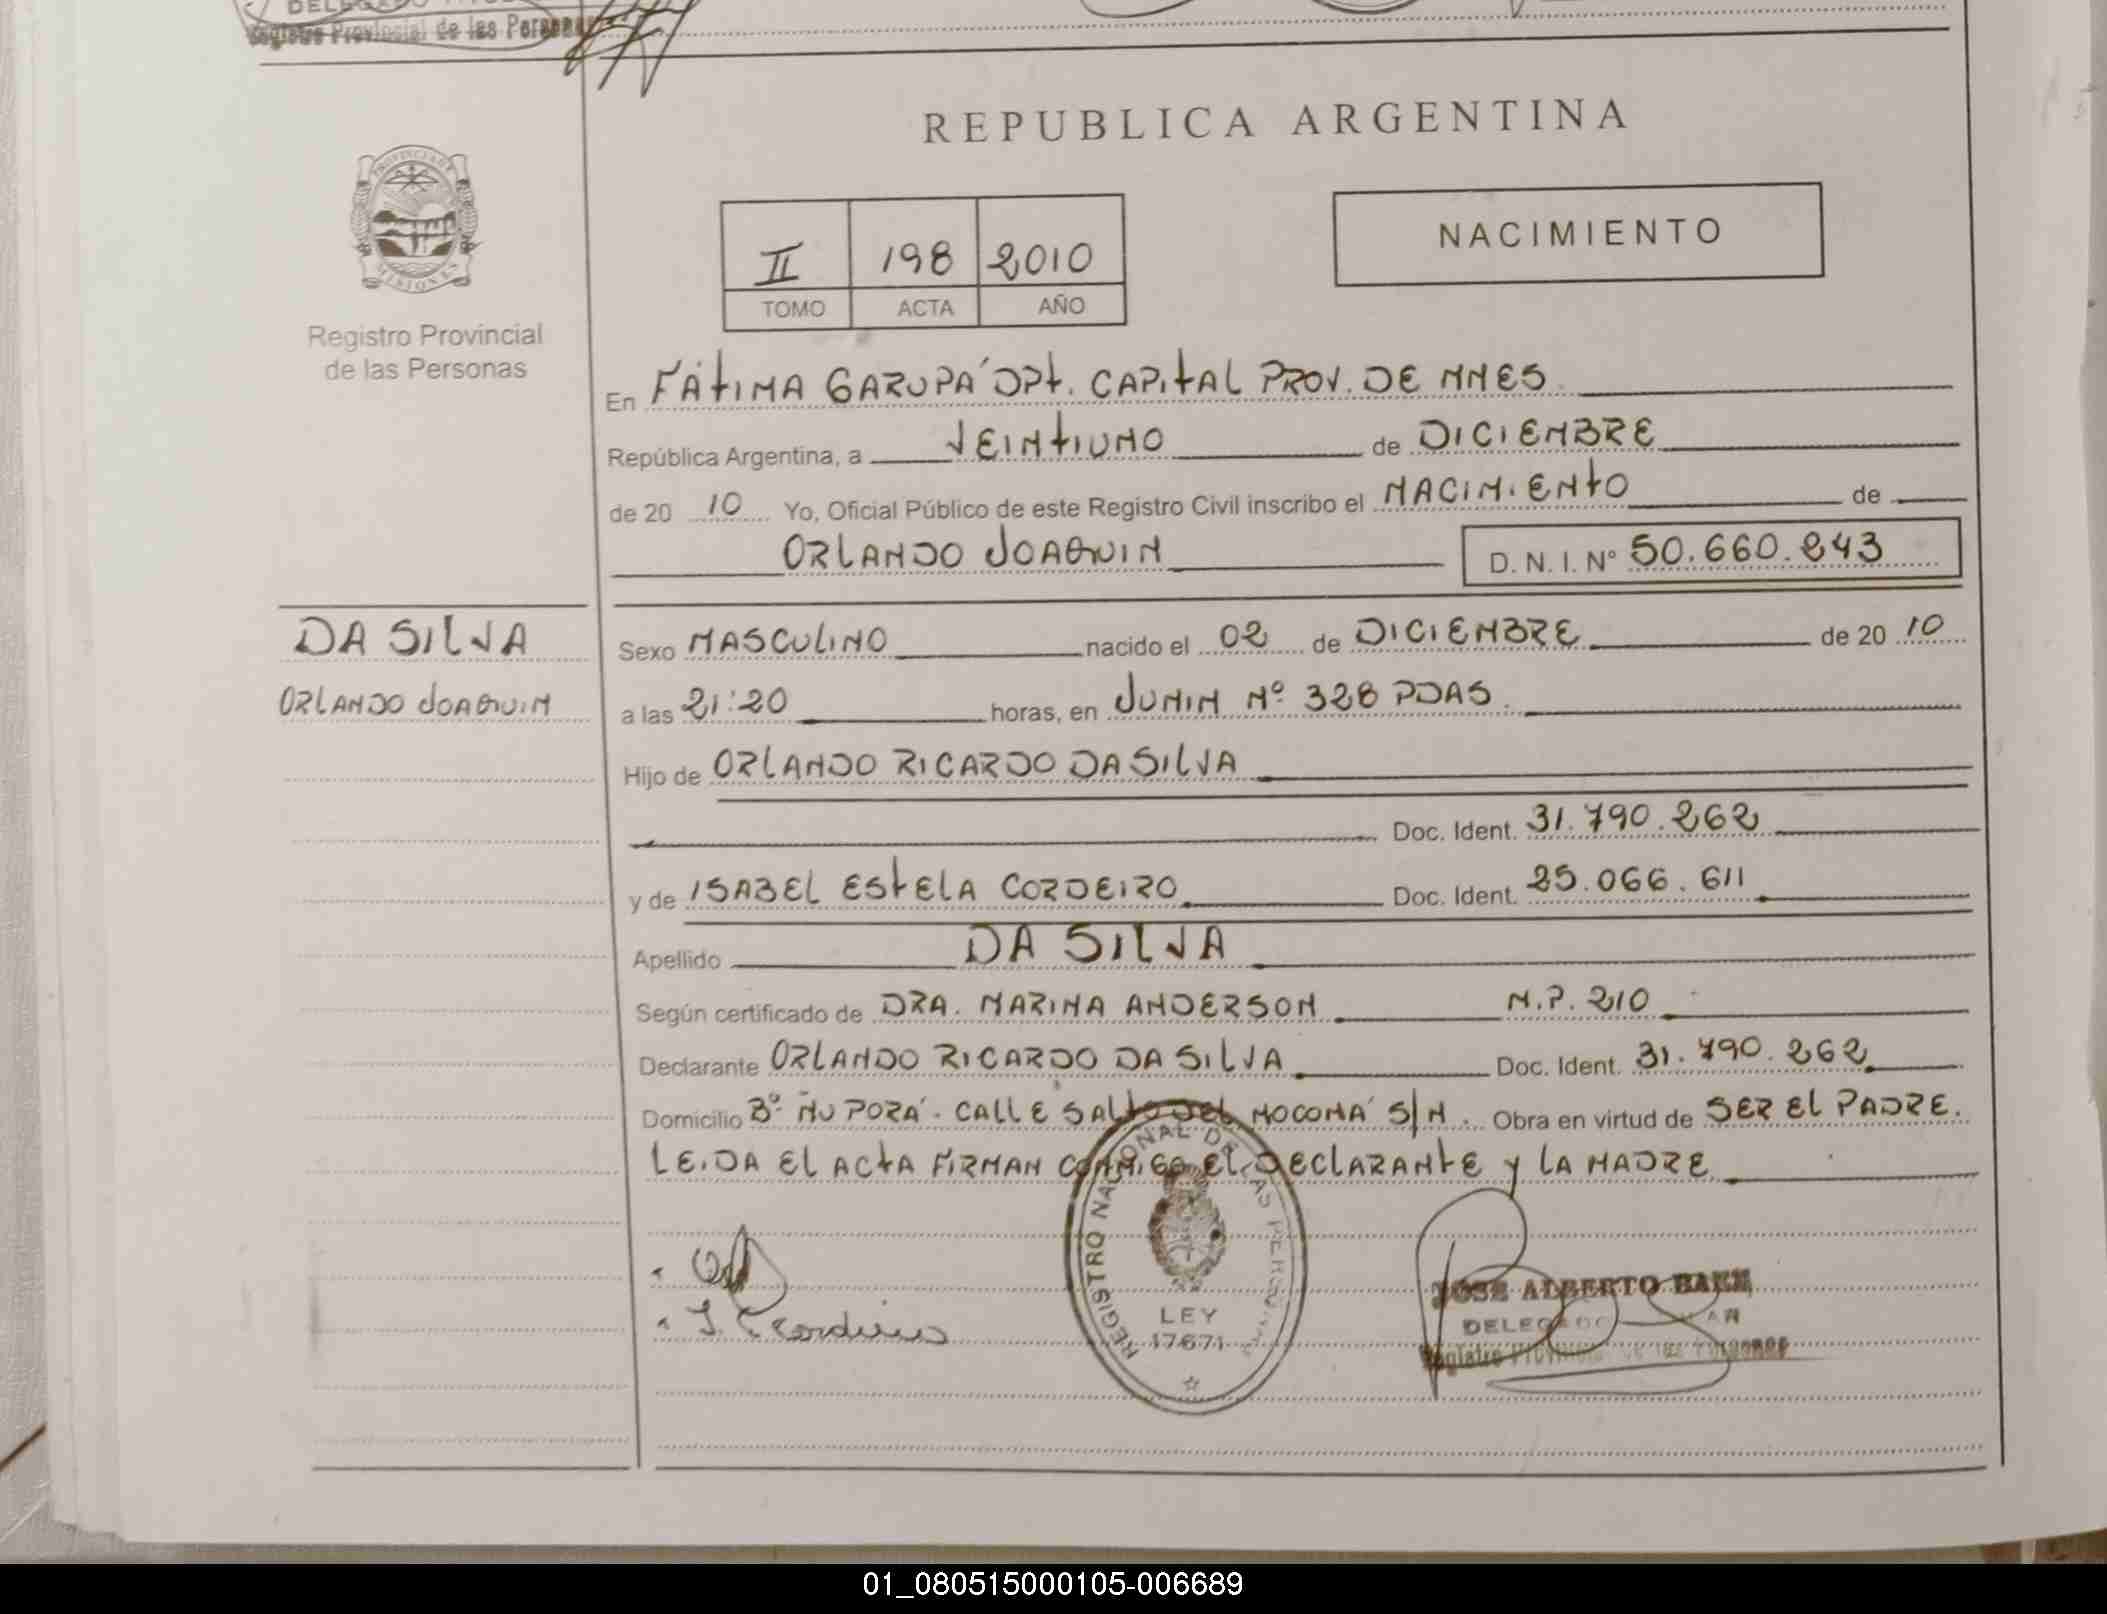 DELEGADO
Registro Provincial de las Personas
REPUBLICA ARGENTINA
PROVINCIA DE
MISIONES
Registro Provincial
de las Personas
II 198 2010
TOMO ACTA AÑO
NACIMIENTO
En FÁTIMA GARUPÁ DPT. CAPITAL PROV. DE MNES
República Argentina, a VEINTIUNO de DICIEMBRE
de 20 10 Yo, Oficial Público de este Registro Civil inscribo el NACIMIENTO de
ORLANDO JOAQUIN D. N. I. Nº 50.660.243
DA SILVA
ORLANDO JOAQUIN
Sexo MASCULINO nacido el 02 de DICIEMBRE de 20 10
a las 21:20 horas, en JUNIN Nº 328 PDAS.
Hijo de ORLANDO RICARDO DA SILVA
Doc. Ident. 31.790.262
y de ISABEL ESTELA CORDEIRO Doc. Ident. 25.066.611
Apellido DA SILVA
Según certificado de DRA. MARINA ANDERSON M.P. 210
Declarante ORLANDO RICARDO DA SILVA Doc. Ident. 31.790.262
Domicilio Bº ÑU PORÁ. CALLE SALTO DEL MOCONÁ S/N. Obra en virtud de SER EL PADRE.
LEIDA EL ACTA FIRMAN CONMIGO EL DECLARANTE Y LA MADRE
REGISTRO NACIONAL DE LAS PERSONAS
LEY
17671
JOSE ALBERTO BAEZ
DELEGADO
Registro Provincial de las Personas
01_080515000105-006689